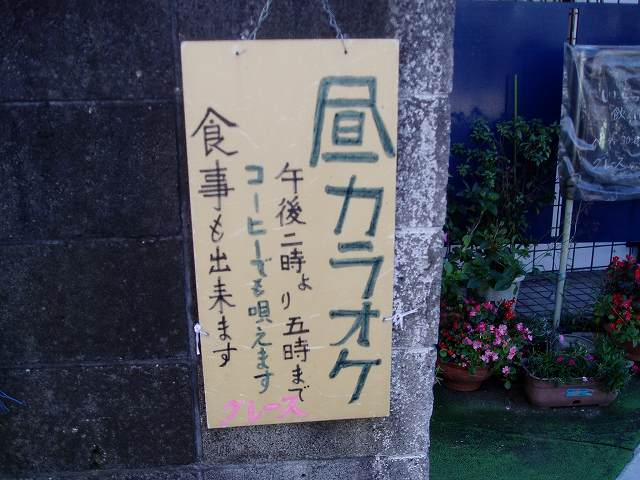 昼カラオケ
午後二時より五時まで
コーヒーでも唄えます
食事も出来ます
グレース